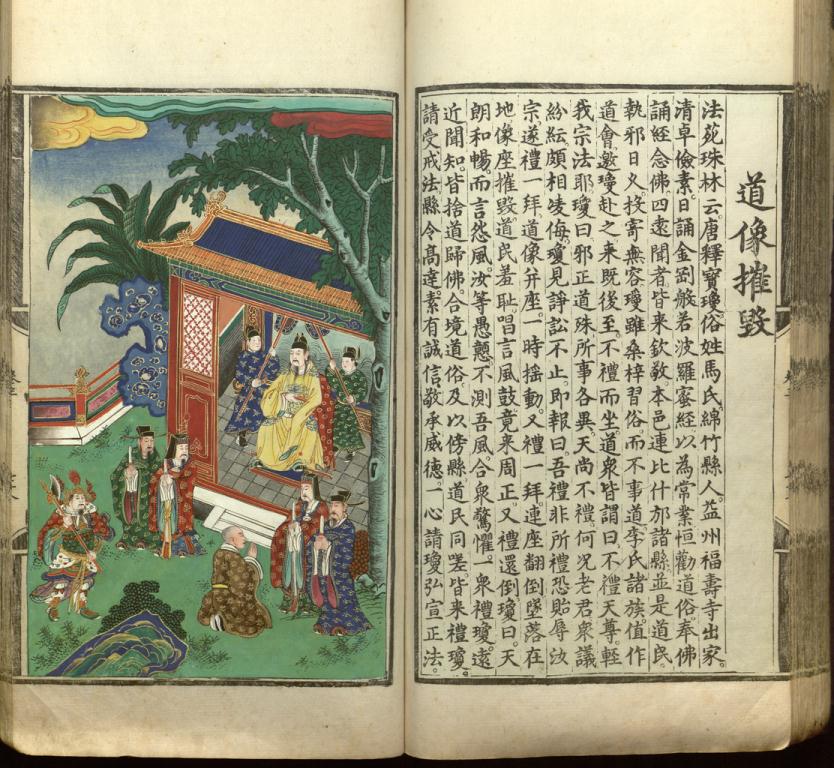 道像摧毀
法苑珠林云。唐釋寶瓊。俗姓馬氏。綿竹縣人。益州福壽寺出家。
清卓儉素。日誦金剛般若波羅蜜經。以為常業。恒勸道俗。奉佛
誦經念佛。四遠聞者。皆來欽敬。本邑連比什邡諸縣。並是道民。
執邪日久。投寄無容。瓊雖桑梓習俗。而不事道。李氏諸族。值作
道會。邀瓊赴之。來既後至。不禮而坐。道眾皆謂曰。不禮天尊。輕
我宗法耶。瓊曰。邪正道殊。所事各異。天尚不禮。何況老君。眾議
紛紜。頗相凌侮。瓊見諍訟不止。即報曰。吾禮非所禮。恐貽辱汝
宗。遂禮一拜。道像并座。一時搖動。又禮一拜。連座翻倒。墜落在
地。像座摧毀。道民羞恥。唱言風鼓。竟來周正。又禮還倒。瓊曰。天
朗和暢。而言怨風。汝等愚戇。不測吾風。合眾驚懼。一眾禮瓊。遠
近聞知。皆捨道歸佛。合境道俗。及以傍縣道民。同嗟。皆來禮瓊。
請受戒法。縣令高達。素有誠信。敬承威德。一心請瓊。弘宣正法。